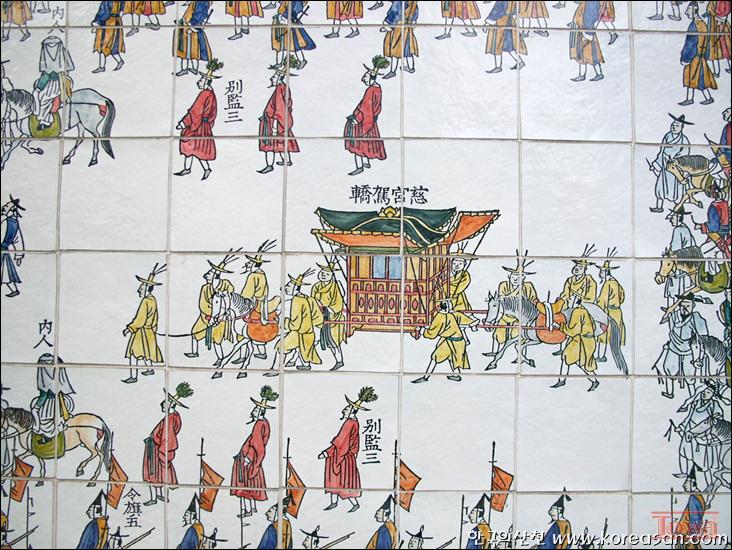 内
別監三
慈宮駕轎
内人
別監三
令旗五
한국의산천 www.koreasan.com